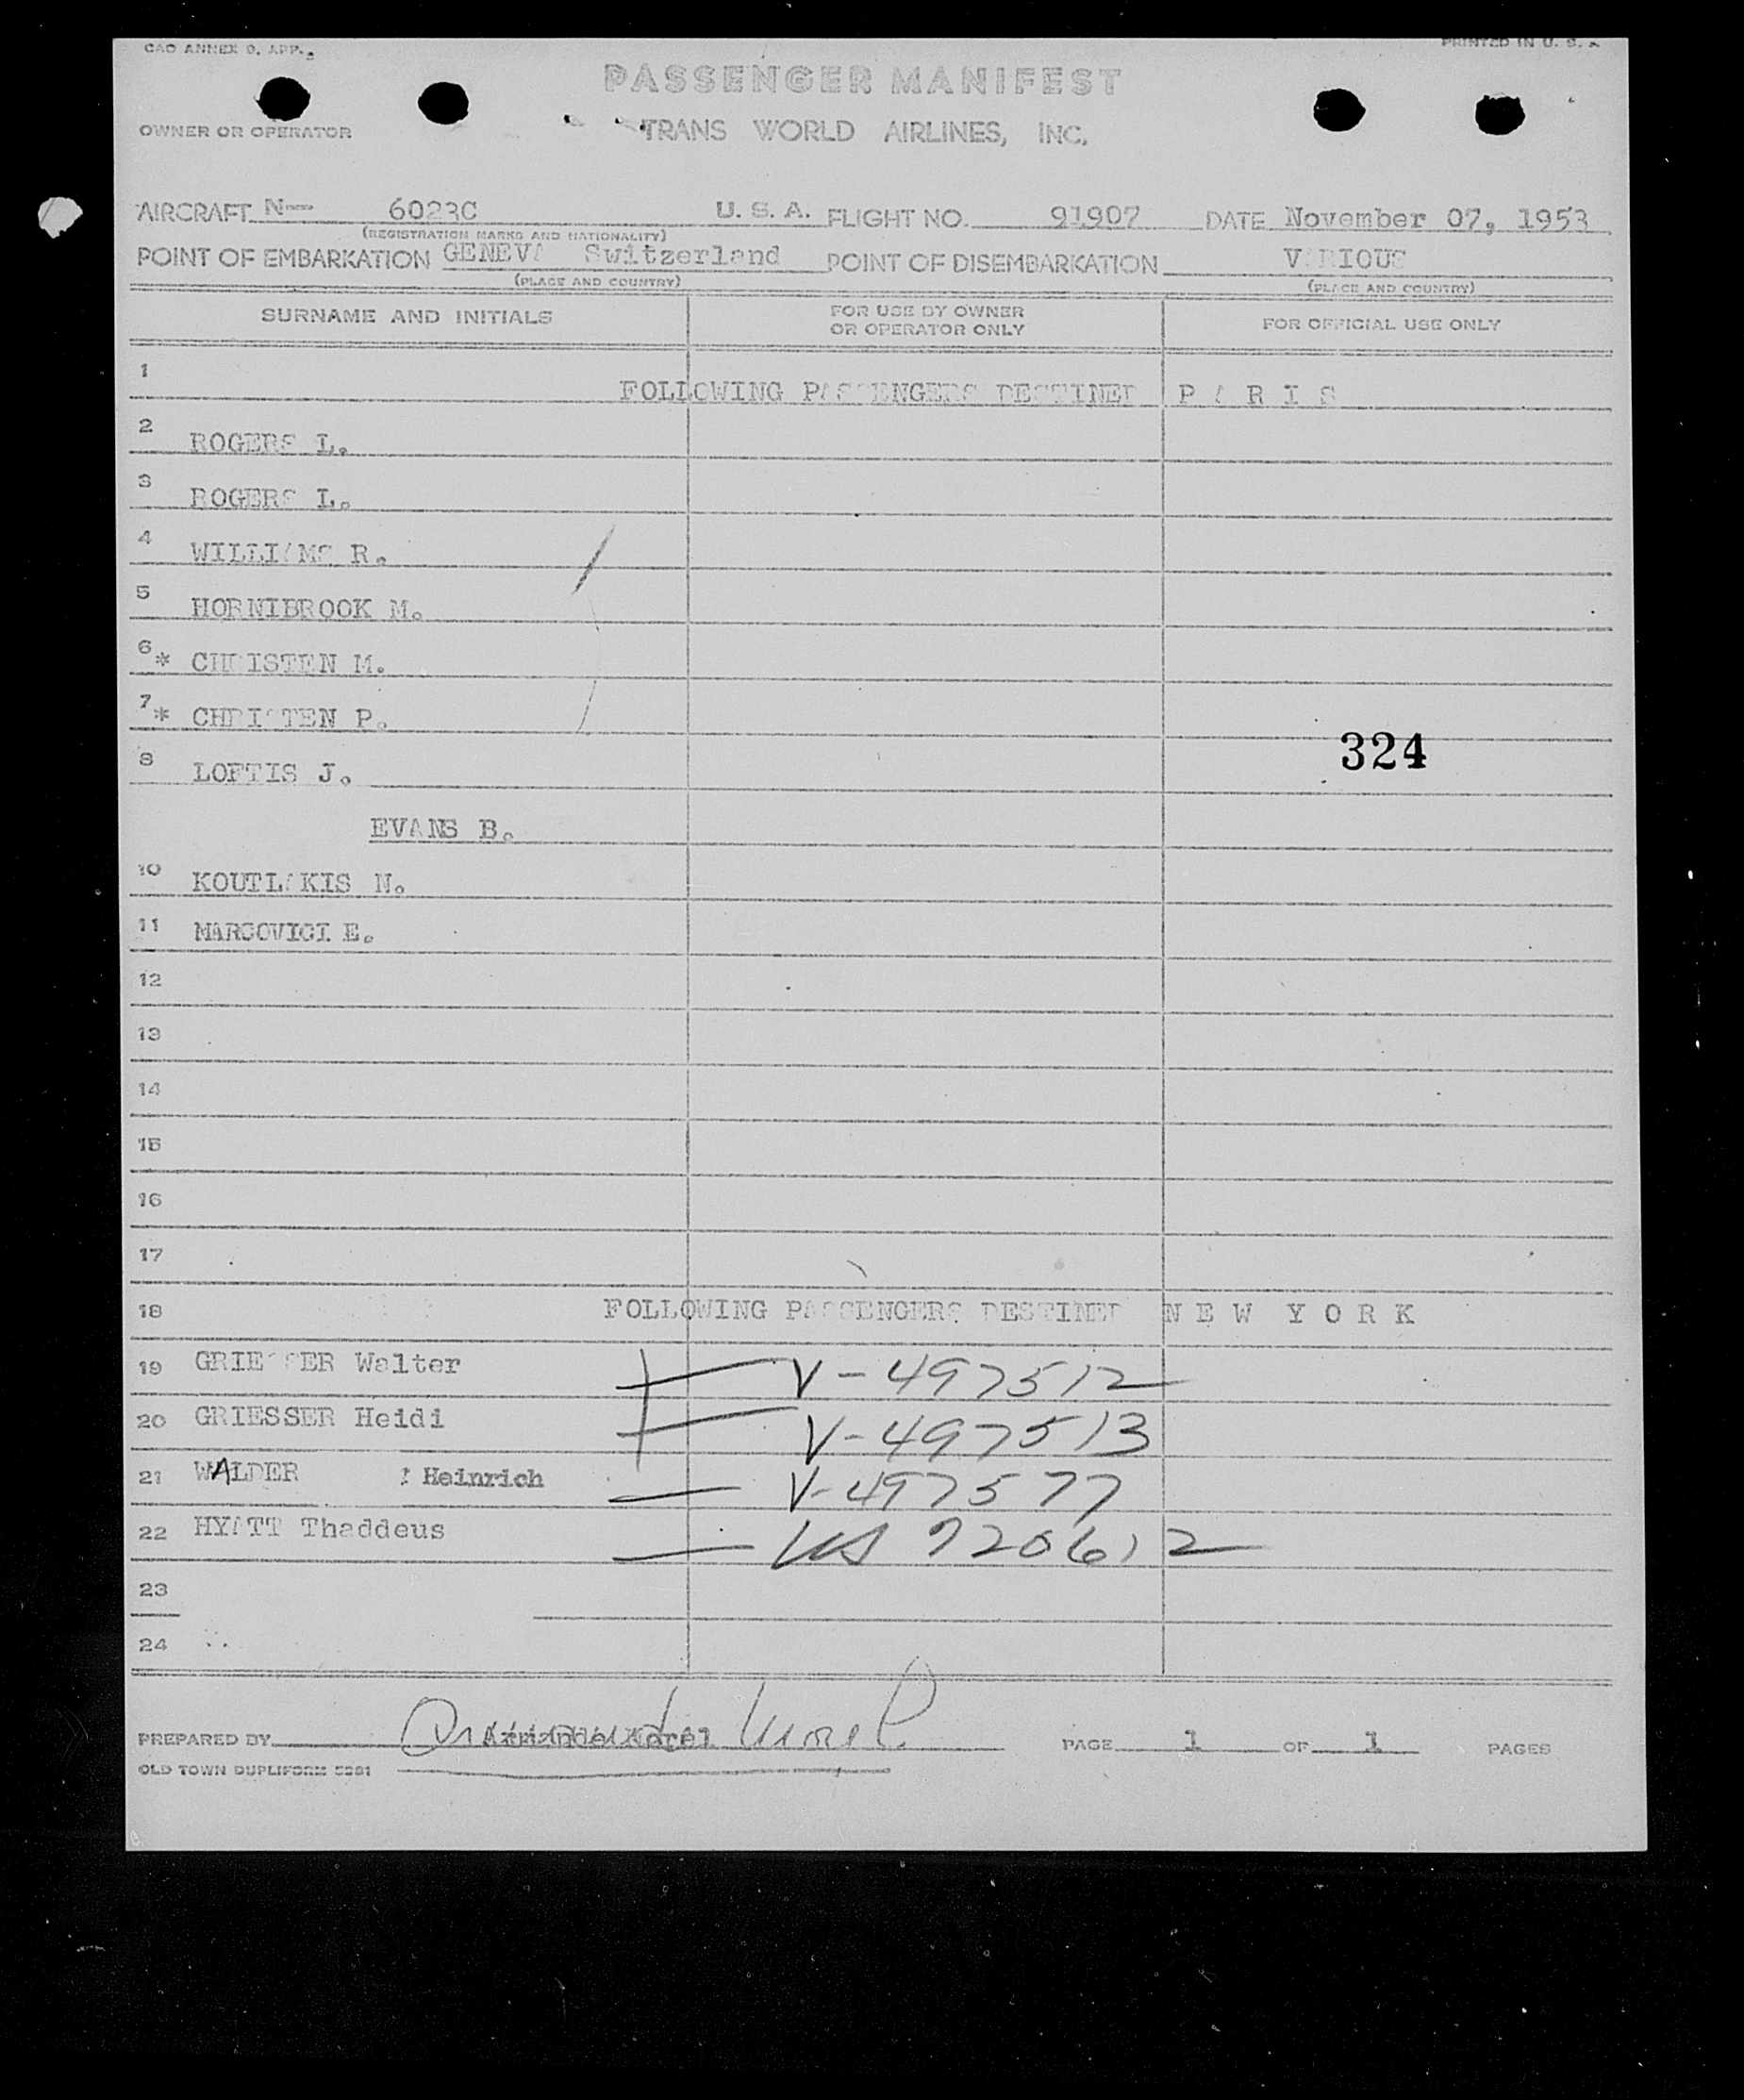 PRINTED IN U. S. A
PASSENGER MANIFEST
OWNER OR OPERATOR TRANS WORLD AIRLINES, INC.
AIRCRAFT N-- 6023C U. S. A. FLIGHT NO. 91907 DATE November 07, 1953
(REGISTRATION MARKS AND NATIONALITY)
POINT OF EMBARKATION GENEVA Switzerland POINT OF DISEMBARKATION VARIOUS
(PLACE AND COUNTRY) (PLACE AND COUNTRY)
SURNAME AND INITIALS FOR USE BY OWNER OR OPERATOR ONLY FOR OFFICIAL USE ONLY
1 FOLLOWING PASSENGERS DESTINED P A R I S
2 ROGERS L.
3 ROGERS L.
4 WILLIAMS R.
5 HORNIBROOK M.
6 * CHRISTEN M.
7 * CHRISTEN P.
324
8 LOFTIS J.
EVANS B.
10 KOUTLAKIS N.
11 MARCOVICI E.
12
13
14
15
16
17
18 FOLLOWING PASSENGERS DESTINED N E W Y O R K
19 GRIESSER Walter V-497512
20 GRIESSER Heidi V-497513
21 WALDER Heinrich V-497577
22 HYATT Thaddeus US 720612
23
24
PREPARED BY PAGE 1 OF 1 PAGES
OLD TOWN DUPLIFORM